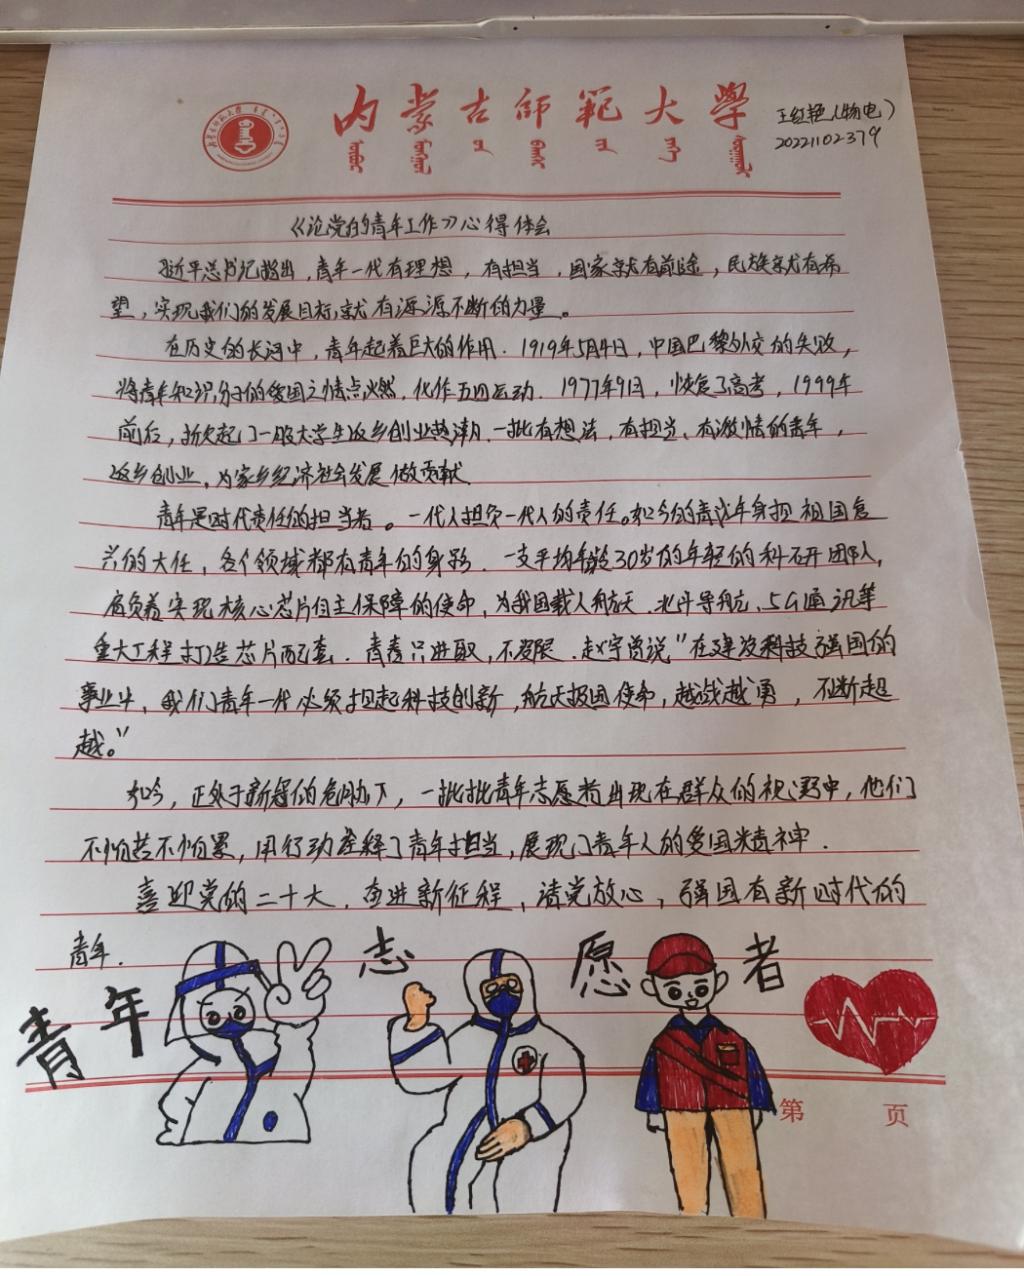 内蒙古师範大學
王红艳(物电)
20221102379
《论党的青年工作》心得体会
习近平总书记指出,青年一代有理想,有担当,国家就有前途,民族就有希
望,实现我们的发展目标就有源源不断的力量。
在历史的长河中,青年起着巨大的作用.1919年5月4日,中国巴黎外交的失败,
将青年知识分子的爱国之情点燃,化作五四运动.1977年9日,恢复了高考,1999年
前后,掀起了一股大学生返乡创业热潮.一批有想法,有担当、有激情的青年,
返乡创业,为家乡经济社会发展做贡献.
青年是时代责任的担当者。一代人担负一代人的责任。如今的青年身担祖国复
兴的大任,各个领域都有青年的身影.一支平均年龄30岁的年轻的科研团队,
肩负着实现核心芯片自主保障的使命,为我国载人航天、北斗导航、5G通讯等
重大工程打造芯片配套.青春只进取,不设限.赵宇曾说"在建设科技强国的
事业中,我们青年一代必须担起科技创新,航天报国使命,越战越勇,不断超
越。"
如今,正处于新冠的危胁下,一批批青年志愿者出现在群众的视野中,他们
不怕苦不怕累,用行动诠释了青年担当,展现了青年人的爱国精神.
喜迎党的二十大,奋进新征程,请党放心,强国有新时代的
青年.
青年志愿者
第 页